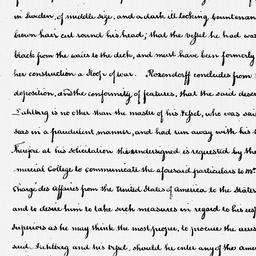 in Sweden, of middle size, and a dark ill looking countenan
brown hair cut round his head; that the vessel he had was
black from the wales to the deck, and must have been formerly
her constuction a sloop of war. Rosendorff concludes from
deposition, and the conformity of features, that the said desert
Dahlberg is no other than the master of his Vessel, who was said
seas in a fraudulent manner, and had run away with his
at his solicitation the undersigned is requested by the
mercial College to communicate the aforesaid particulars to Mr.
Chargé des affaires from the United States of America to the States
and to desire him to take such measures in regard to his
Superiors as he may think the most proper, to procure the arres
said Dahlberg and his vessel, should he enter any of the ameri